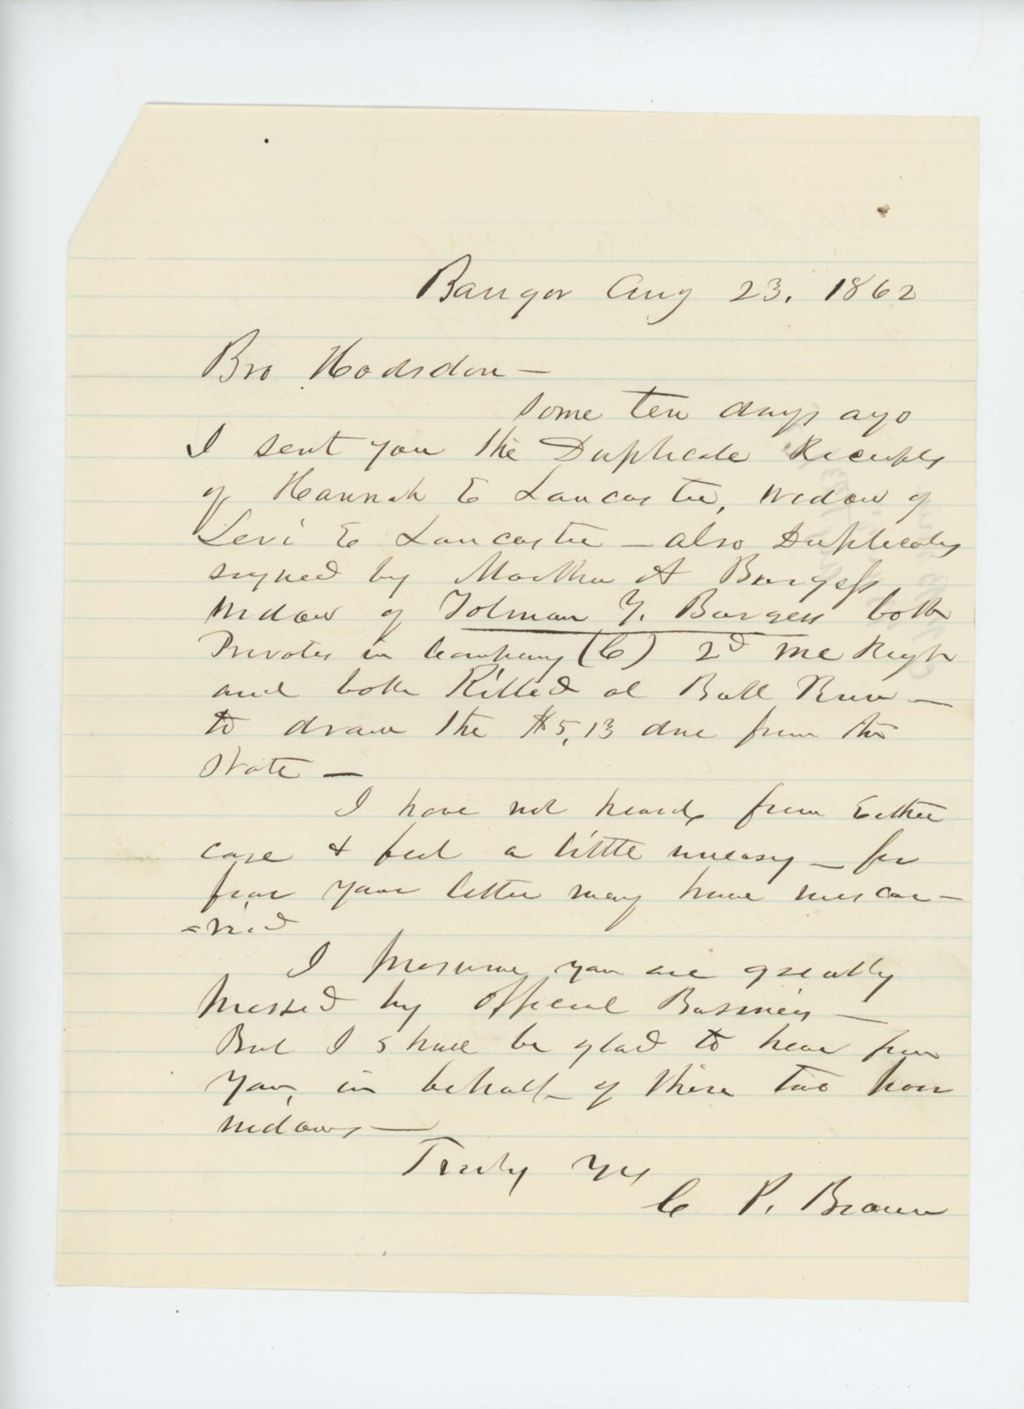 Bangor Aug 23, 1862
Bro Hodsdon —
Some ten days ago
I sent you the Duplicate Receipts
of Hannah E Lancaster, widow of
Levi E Lancaster — also Duplicates
signed by Martha A Burgess
widow of Tolman Y. Burgess both
Privates in Company (C) 2d Me Regt
and both Killed at Bull Run —
to draw the $5,13 due from the
State —
I have not heard from Either
case & feel a little uneasy — for
fear your letter may have miscar—
=ried
I presume you are greatly
pressed by official Business —
But I shall be glad to hear from
you, in behalf of these two poor
widows —
Truly Yrs
C P. Brown